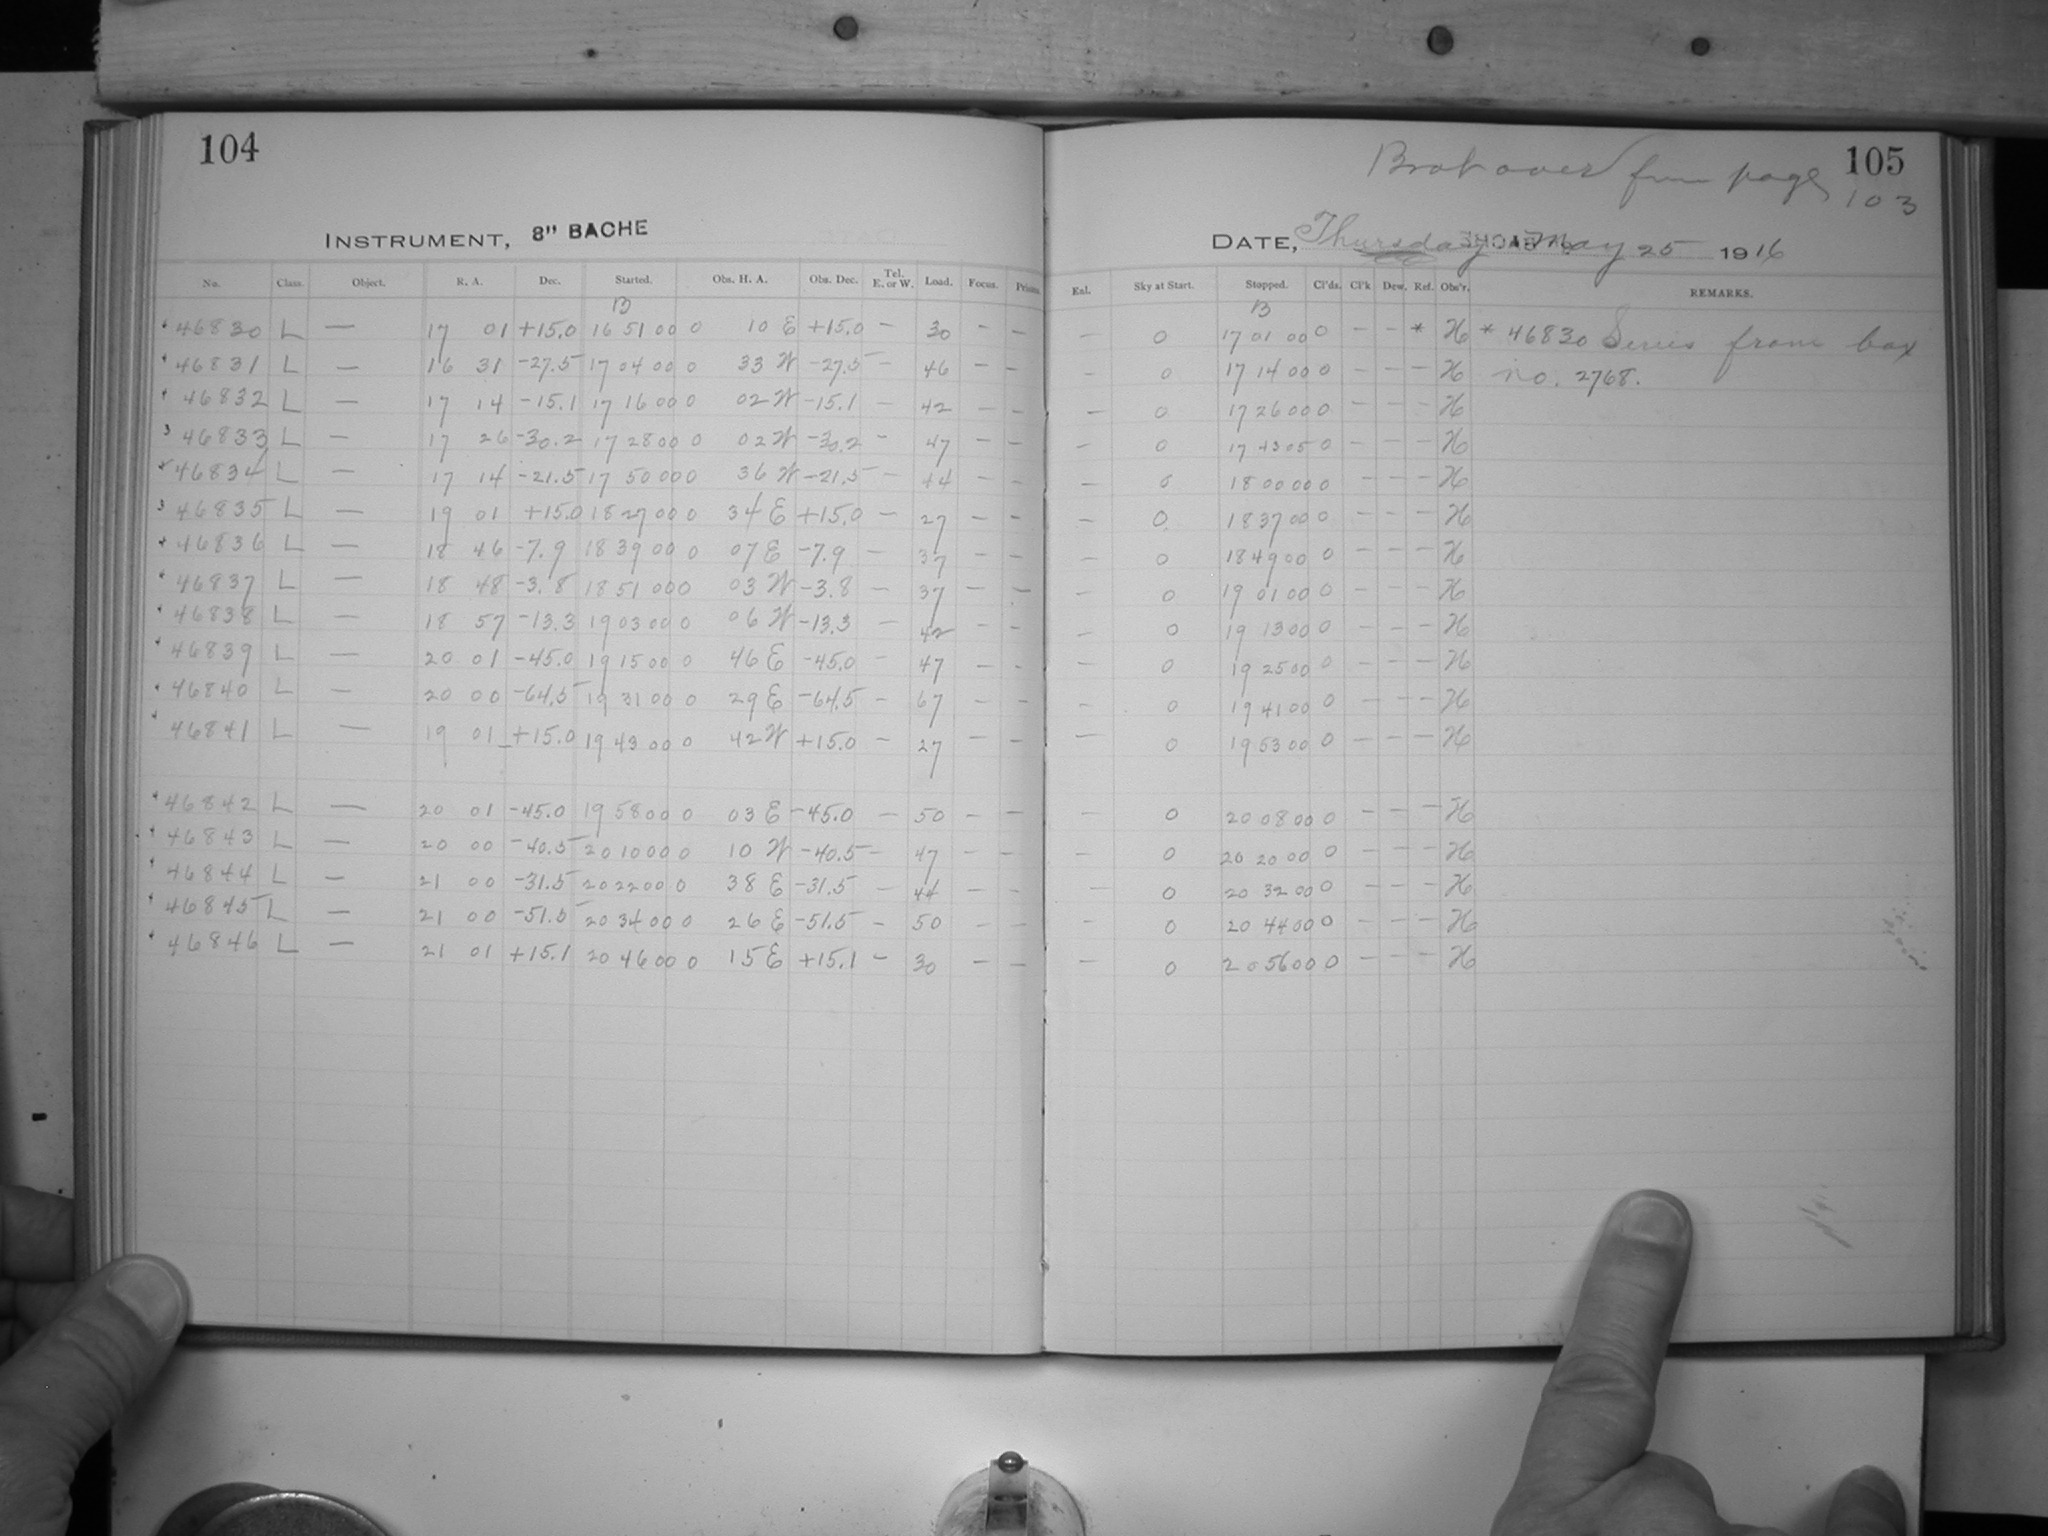 104
INSTRUMENT, 8" BACHE
No. Class. Object. R. A. Dec. Started. Obs. H. A. Obs. Dec. Tel. E. or W. Load. Focus. Prisms.
B
46830 L — 17 01 +15.0 16 51 00 0 10 E +15.0 — 30 — —
46831 L — 16 31 -27.5 17 04 00 0 33 W -27.5 — 46 — —
46832 L — 17 14 -15.1 17 16 00 0 02 W -15.1 — 42 — —
46833 L — 17 26 -30.2 17 28 00 0 02 W -30.2 — 47 — —
46834 L — 17 14 -21.5 17 50 00 0 36 W -21.5 — 44 — —
46835 L — 19 01 +15.0 18 27 00 0 34 E +15.0 — 27 — —
46836 L — 18 46 -7.9 18 39 00 0 07 E -7.9 — 37 — —
46837 L — 18 48 -3.8 18 51 00 0 03 W -3.8 — 37 — —
46838 L — 18 57 -13.3 19 03 00 0 06 W -13.3 — 42 — —
46839 L — 20 01 -45.0 19 15 00 0 46 E -45.0 — 47 — —
46840 L — 20 00 -64.5 19 31 00 0 29 E -64.5 — 67 — —
46841 L — 19 01 +15.0 19 43 00 0 42 W +15.0 — 27 — —
46842 L — 20 01 -45.0 19 58 00 0 03 E -45.0 — 50 — —
46843 L — 20 00 -40.5 20 10 00 0 10 W -40.5 — 47 — —
46844 L — 21 00 -31.5 20 22 00 0 38 E -31.5 — 44 — —
46845 L — 21 00 -51.5 20 34 00 0 26 E -51.5 — 50 — —
46846 L — 21 01 +15.1 20 46 00 0 15 E +15.1 — 30 — —
105
Brot over from page 103
DATE, Thursday May 25 1916
Exl. Sky at Start. Stopped. Cl'ds. Cl'k Dew. Ref. Obs'r. REMARKS.
B
— 0 17 01 00 0 — — * H * 46830 Series from box
— 0 17 14 00 0 — — — H no. 2768.
— 0 17 26 00 0 — — — H
— 0 17 43 05 0 — — — H
— 0 18 00 00 0 — — — H
— 0 18 37 00 0 — — — H
— 0 18 49 00 0 — — — H
— 0 19 01 00 0 — — — H
— 0 19 13 00 0 — — — H
— 0 19 25 00 0 — — — H
— 0 19 41 00 0 — — — H
— 0 19 53 00 0 — — — H
— 0 20 08 00 0 — — — H
— 0 20 20 00 0 — — — H
— 0 20 32 00 0 — — — H
— 0 20 44 00 0 — — — H
— 0 20 56 00 0 — — — H